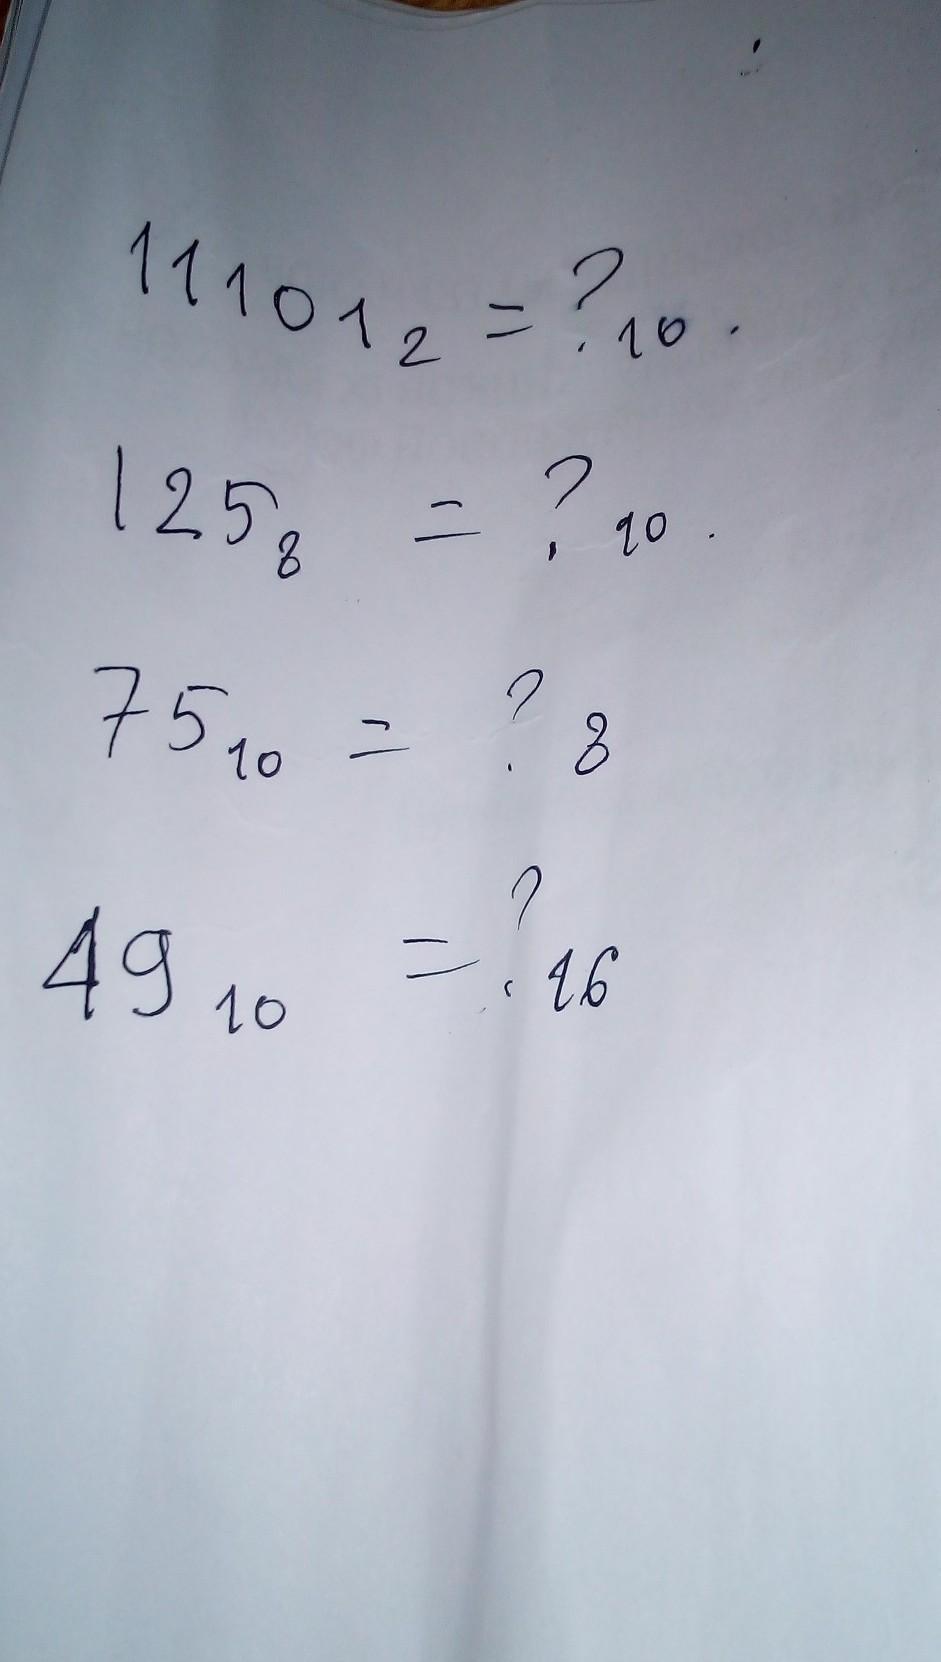 11101₂ = ?₁₀.
125₈ = ?₁₀.
75₁₀ = ?₈
49₁₀ = ?₁₆